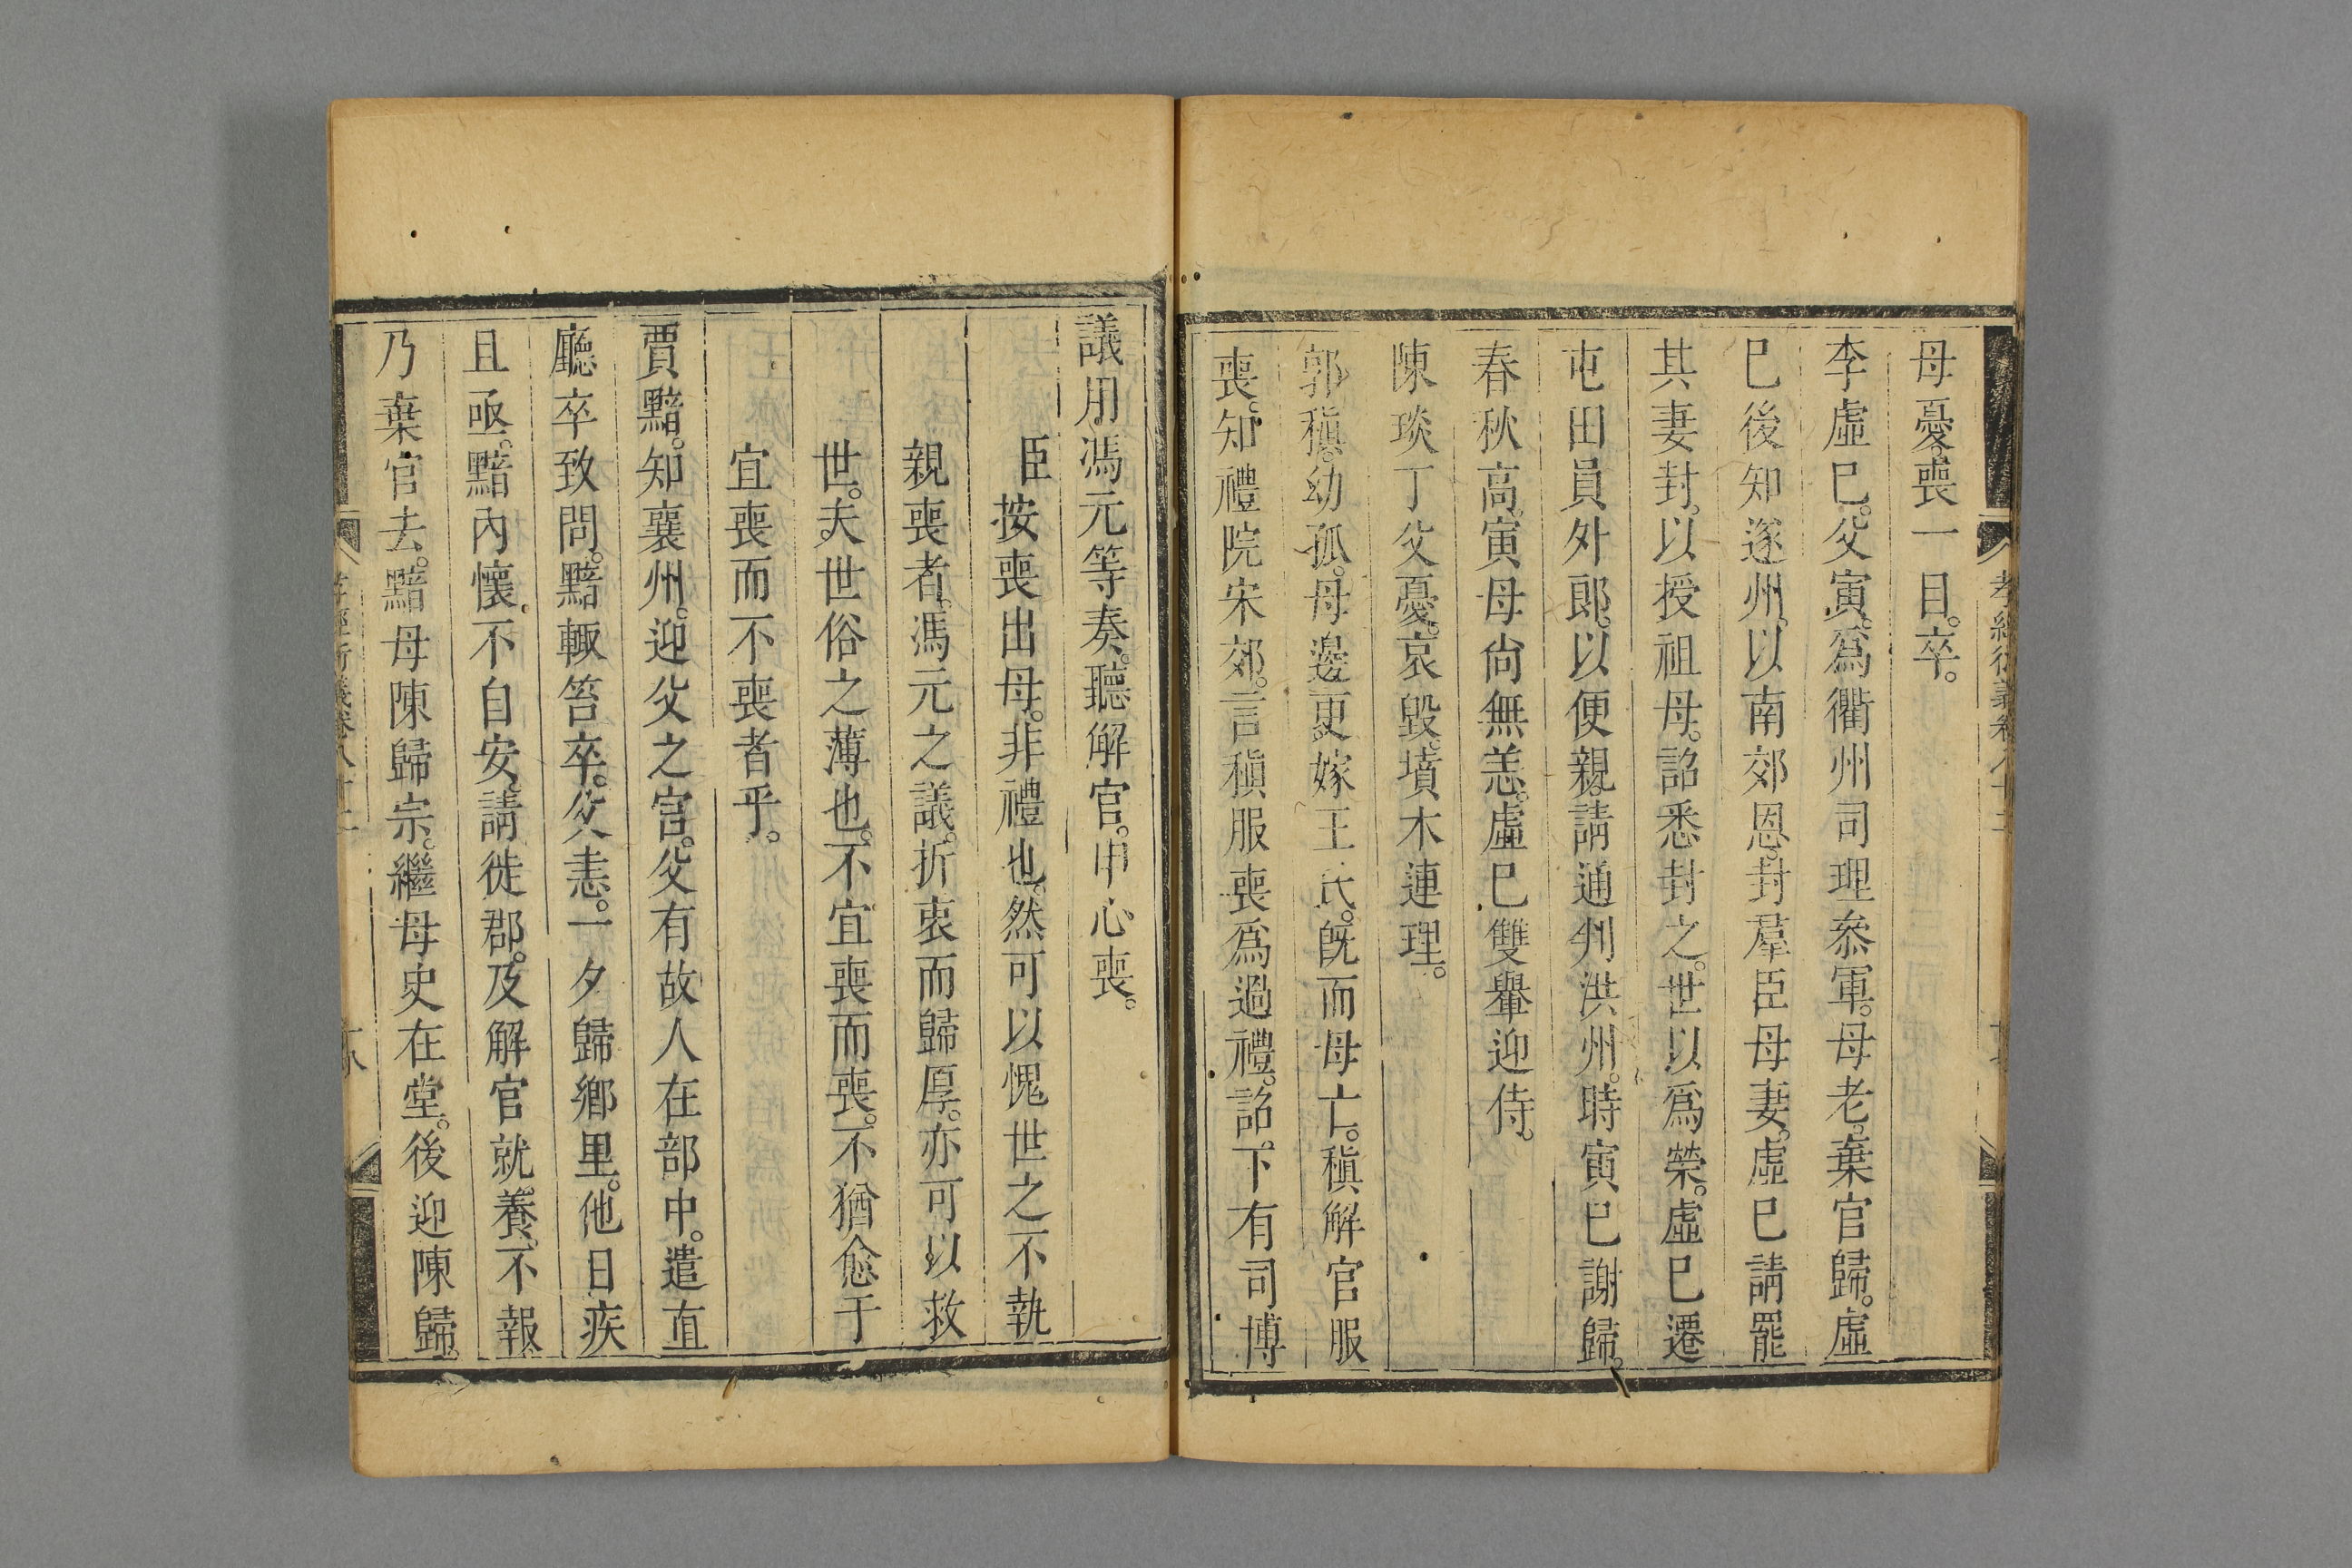 母憂。喪一目。卒。
李虛已。父寅。爲衢州司理叅軍。母老。棄官歸。虛
已後知遂州。以南郊恩。封羣臣母妻。虛已請罷
其妻封。以授祖母。詔悉封之。世以爲榮。虛已遷
屯田員外郎。以便親。請通判洪州。時寅已謝歸。
春秋高。寅母尙無恙。虛已雙轝迎侍。
陳琰丁父憂。哀毀。墳木連理。
郭稹。幼孤。母邊更嫁王氏。旣而母亡。稹解官服
喪。知禮院宋郊。言稹服喪爲過禮。詔。下有司博
議用馮元等奏。聽解官。申心喪。
臣按喪出母。非禮也。然可以愧世之不執
親喪者。馮元之議。折衷而歸厚。亦可以救
世。夫世俗之薄也。不宜喪而喪。不猶愈于
宜喪而不喪者乎。
賈黯。知襄州。迎父之官。父有故人在部中。遣直
廳卒致問。黯輒笞卒。父恚。一夕歸鄉里。他日疾
且亟。黯內懷。不自安。請徙郡。及解官就養。不報。
乃棄官去。黯母陳歸宗。繼母史在堂。後迎陳歸。